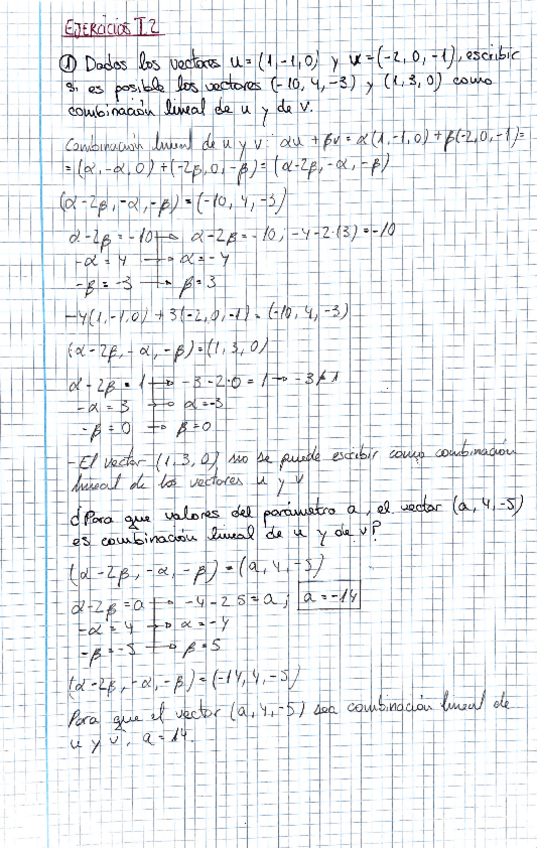 EJERCICIOS T.2
① Dados los vectores u=(1,-1,0) y v=(-2,0,-1), escribir
si es posible los vectores (-10,4,-3) y (1,3,0) como
combinación lineal de u y de v.
Combinación lineal de u y v: αu + βv = α(1,-1,0) + β(-2,0,-1)=
= (α,-α,0)+(-2β,0,-β)= (α-2β,-α,-β)
(α-2β,-α,-β) = (-10,4,-3)
α-2β=-10 → α-2β=-10; -4-2·(3)=-10
-α=4 → α=-4
-β=-3 → β=3
-4(1,-1,0) + 3(-2,0,-1) = (-10,4,-3)
(α-2β,-α,-β)=(1,3,0)
α-2β=1 → -3-2·0=1 → -3≠1
-α=3 → α=-3
-β=0 → β=0
-El vector (1,3,0) no se puede escribir como combinación
lineal de los vectores u y v
¿Para que valores del parámetro a, el vector (a,4,-5)
es combinación lineal de u y de v?
(α-2β,-α,-β)=(a,4,-5)
α-2β=a → -4-2·5=a; a=-14
-α=4 → α=-4
-β=-5 → β=5
(α-2β,-α,-β)=(-14,4,-5)
Para que el vector (a,4,-5) sea combinación lineal de
u y v, a=14.